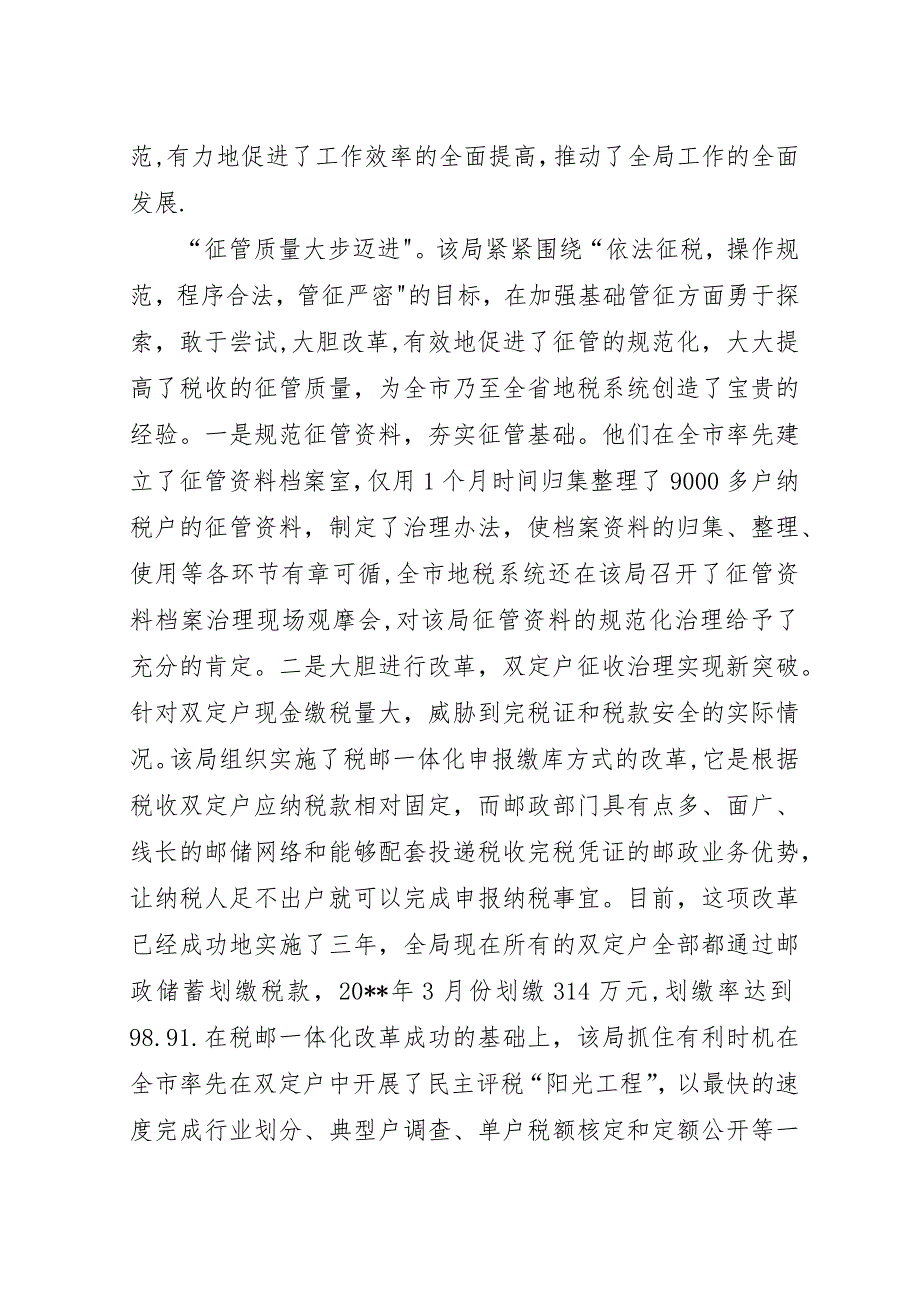 范,有力地促进了工作效率的全面提高,推动了全局工作的全面
发展.
“征管质量大步迈进"。该局紧紧围绕“依法征税，操作规
范，程序合法，管征严密"的目标，在加强基础管征方面勇于探
索，敢于尝试,大胆改革,有效地促进了征管的规范化，大大提
高了税收的征管质量，为全市乃至全省地税系统创造了宝贵的
经验。一是规范征管资料，夯实征管基础。他们在全市率先建
立了征管资料档案室,仅用1个月时间归集整理了9000多户纳
税户的征管资料，制定了治理办法，使档案资料的归集、整理、
使用等各环节有章可循,全市地税系统还在该局召开了征管资
料档案治理现场观摩会,对该局征管资料的规范化治理给予了
充分的肯定。二是大胆进行改革，双定户征收治理实现新突破。
针对双定户现金缴税量大，威胁到完税证和税款安全的实际情
况。该局组织实施了税邮一体化申报缴库方式的改革,它是根据
税收双定户应纳税款相对固定，而邮政部门具有点多、面广、
线长的邮储网络和能够配套投递税收完税凭证的邮政业务优势，
让纳税人足不出户就可以完成申报纳税事宜。目前，这项改革
已经成功地实施了三年，全局现在所有的双定户全部都通过邮
政储蓄划缴税款，20**年3月份划缴314万元,划缴率达到
98.91.在税邮一体化改革成功的基础上，该局抓住有利时机在
全市率先在双定户中开展了民主评税“阳光工程”，以最快的速
度完成行业划分、典型户调查、单户税额核定和定额公开等一